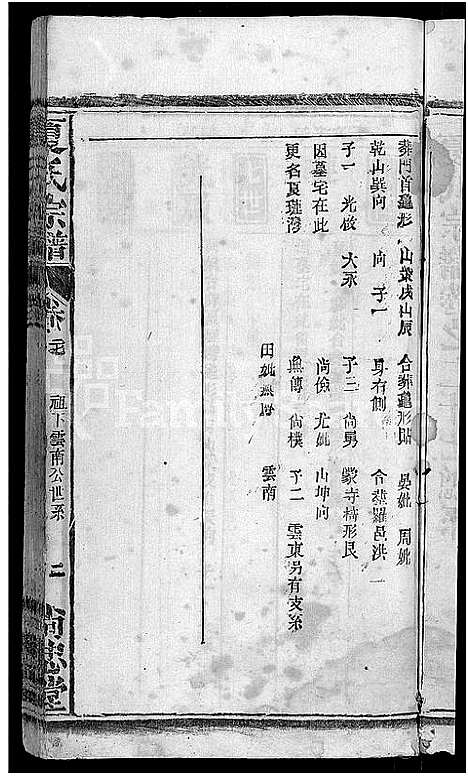 葬門首龜形 山葵戌山辰 合葬龜形貼 吳妣 周妣
乾山巽向 向 子一 身右側 合葬羅邑洪一
子一 光啟 大永 子三 尚勇 蒙寺橋形艮
因墓宅在此 尚儉 尤妣 山坤向
更名夏璉灣 無傳 尚樸 子二 雲東另有支系
田妣無傳 雲南
夏氏宗譜 卷 祖下雲南公世系 二 尚忠堂